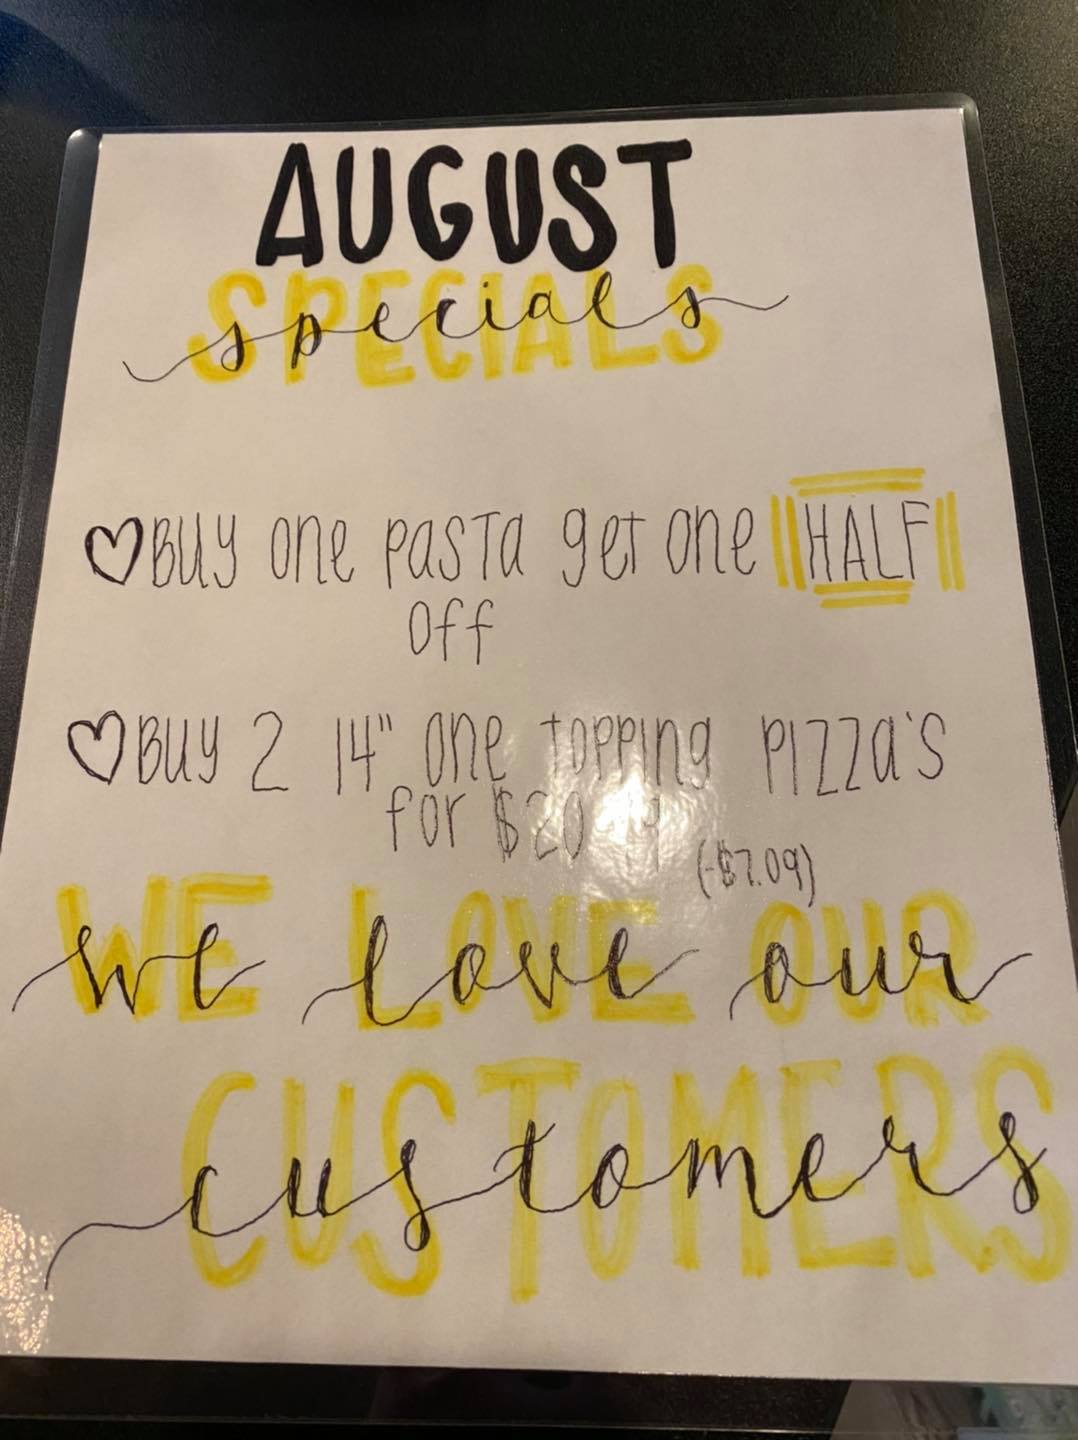 AUGUST
SPECIALS
specials
Buy one pasta get one HALF
off
Buy 2 14" one topping pizza's
for $20
(-$7.09)
WE LOVE OUR
we love our
CUSTOMERS
customers